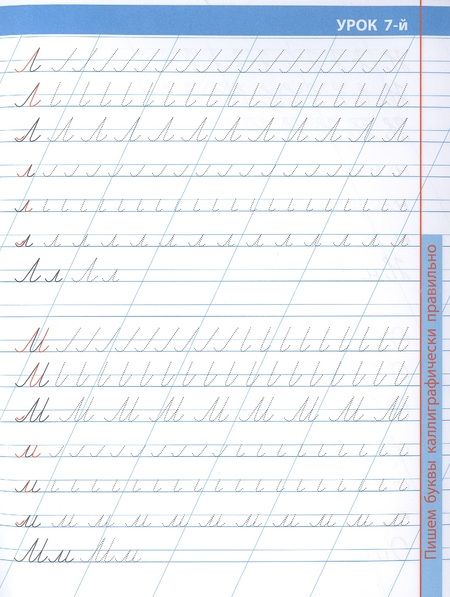 УРОК 7-й
Л
Л
Л Л Л Л Л Л Л Л Л Л Л Л
л
л
л л л л л л л л л л л л л л
Л л Л л
М
М
М М М М М М М М М
м
м
м м м м м м м м м м м
Мм Мм
Пишем буквы каллиграфически правильно